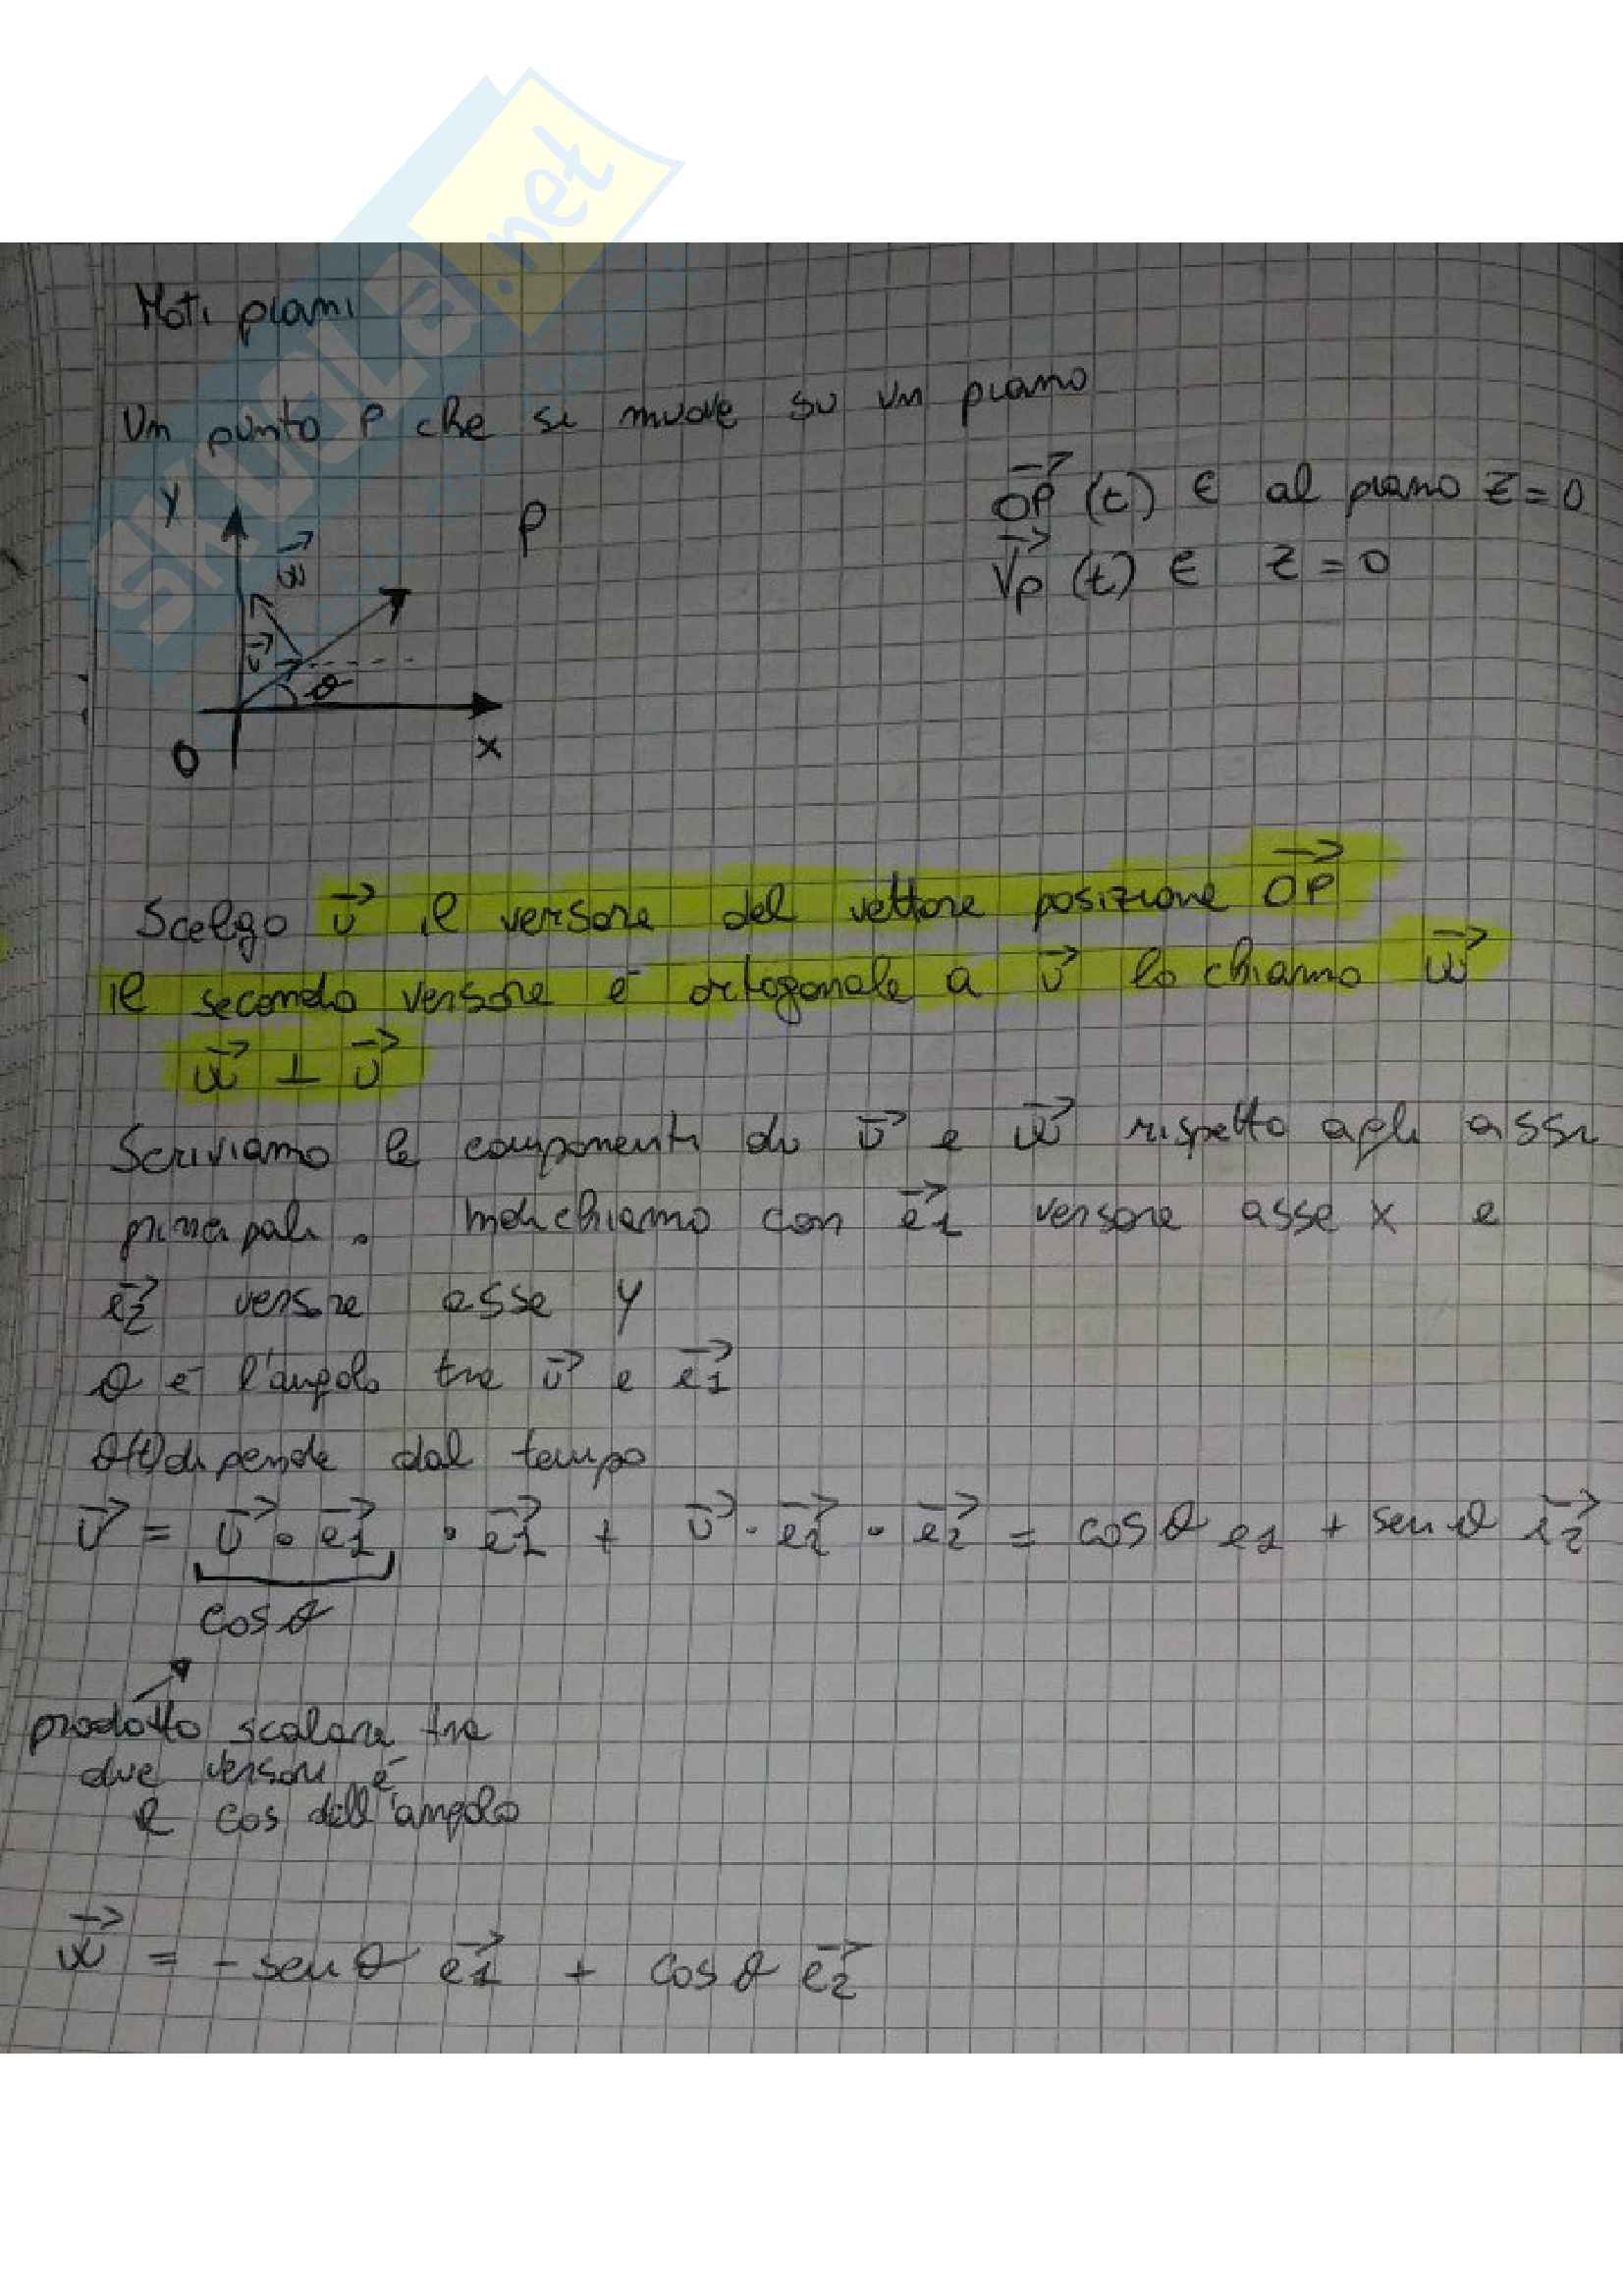 SKUOLa.net
Moti piani
Un punto P che si muove su un piano
y
w⃗
P
OP⃗ (t) ∈ al piano z = 0
Vp⃗ (t) ∈ z = 0
u⃗
θ
O
x
Scelgo u⃗ il versore del vettore posizione OP⃗
il secondo versore è ortogonale a u⃗ lo chiamo w⃗
w⃗ ⊥ u⃗
Scriviamo le componenti di u⃗ e w⃗ rispetto agli assi
principali. Indichiamo con e1⃗ versore asse x e
e2⃗ versore asse y
θ è l'angolo tra u⃗ e e1⃗
θ(t) dipende dal tempo
u⃗ = u⃗ · e1⃗ · e1⃗ + u⃗ · e2⃗ · e2⃗ = cos θ e1 + sen θ e2⃗
cos θ
prodotto scalare tra
due versori è
il cos dell'angolo
w⃗ = - sen θ e1⃗ + cos θ e2⃗